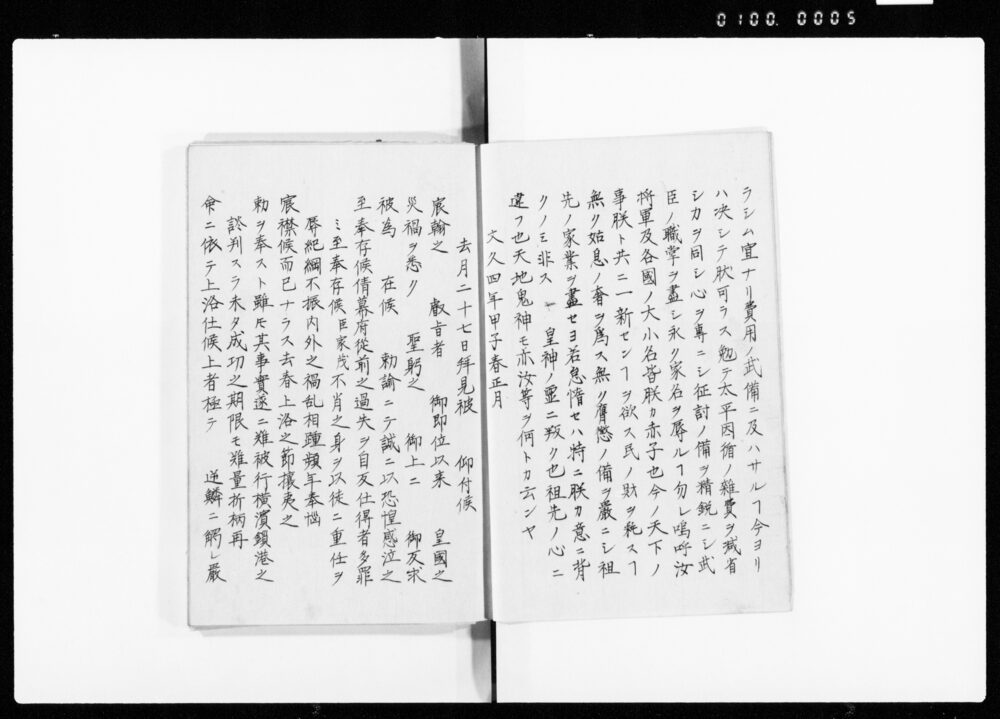 0100.0005
ラシム宜ナリ費用ノ武備ニ及ハサルヿ今ヨリ
ハ決シテ肰可ラス勉テ太平因循ノ雜費ヲ減省
シカヲ同シ心ヲ專ニシ征討ノ備ヲ精鋭ニシ武
臣ノ職掌ヲ盡シ永ク家名ヲ辱ルヿ勿レ嗚呼汝
将軍及各國ノ大小名皆朕カ赤子也今ノ天下ノ
事朕ト共ニ一新センヿヲ欲ス民ノ財ヲ耗スヿ
無ク姑息ノ奢ヲ爲ス無ク膺懲ノ備ヲ嚴ニシ祖
先ノ家業ヲ盡セヨ若怠惰セハ特ニ朕カ意ニ背
クノミ非ス 皇神ノ靈ニ叛ク也祖先ノ心ニ
違フ也天地鬼神モ亦汝等ヲ何トカ云ンヤ
文久四年甲子春正月
去月二十七日拜見被 仰付候
宸翰之 叡旨者 御即位以来 皇國之
災福ヲ悉ク 聖躬之 御上ニ 御反求
被為 在候 勅諭ニテ誠ニ以恐惶感泣之
至奉存候倩幕府従前之過失ヲ自反仕得者多罪
ミ至奉存候臣家茂不肖之身ヲ以徒ニ重任ヲ
辱紀綱不振内外之禍乱相踵頻年奉悩
宸襟候而已ナラス去春上洛之節攘夷之
勅ヲ奉スト雖𪜈其事實遂ニ難被行横濱鎖港之
談判スラ未タ成功之期限モ難量折柄再
命ニ依テ上洛仕候上者極テ 逆鱗ニ觸レ嚴